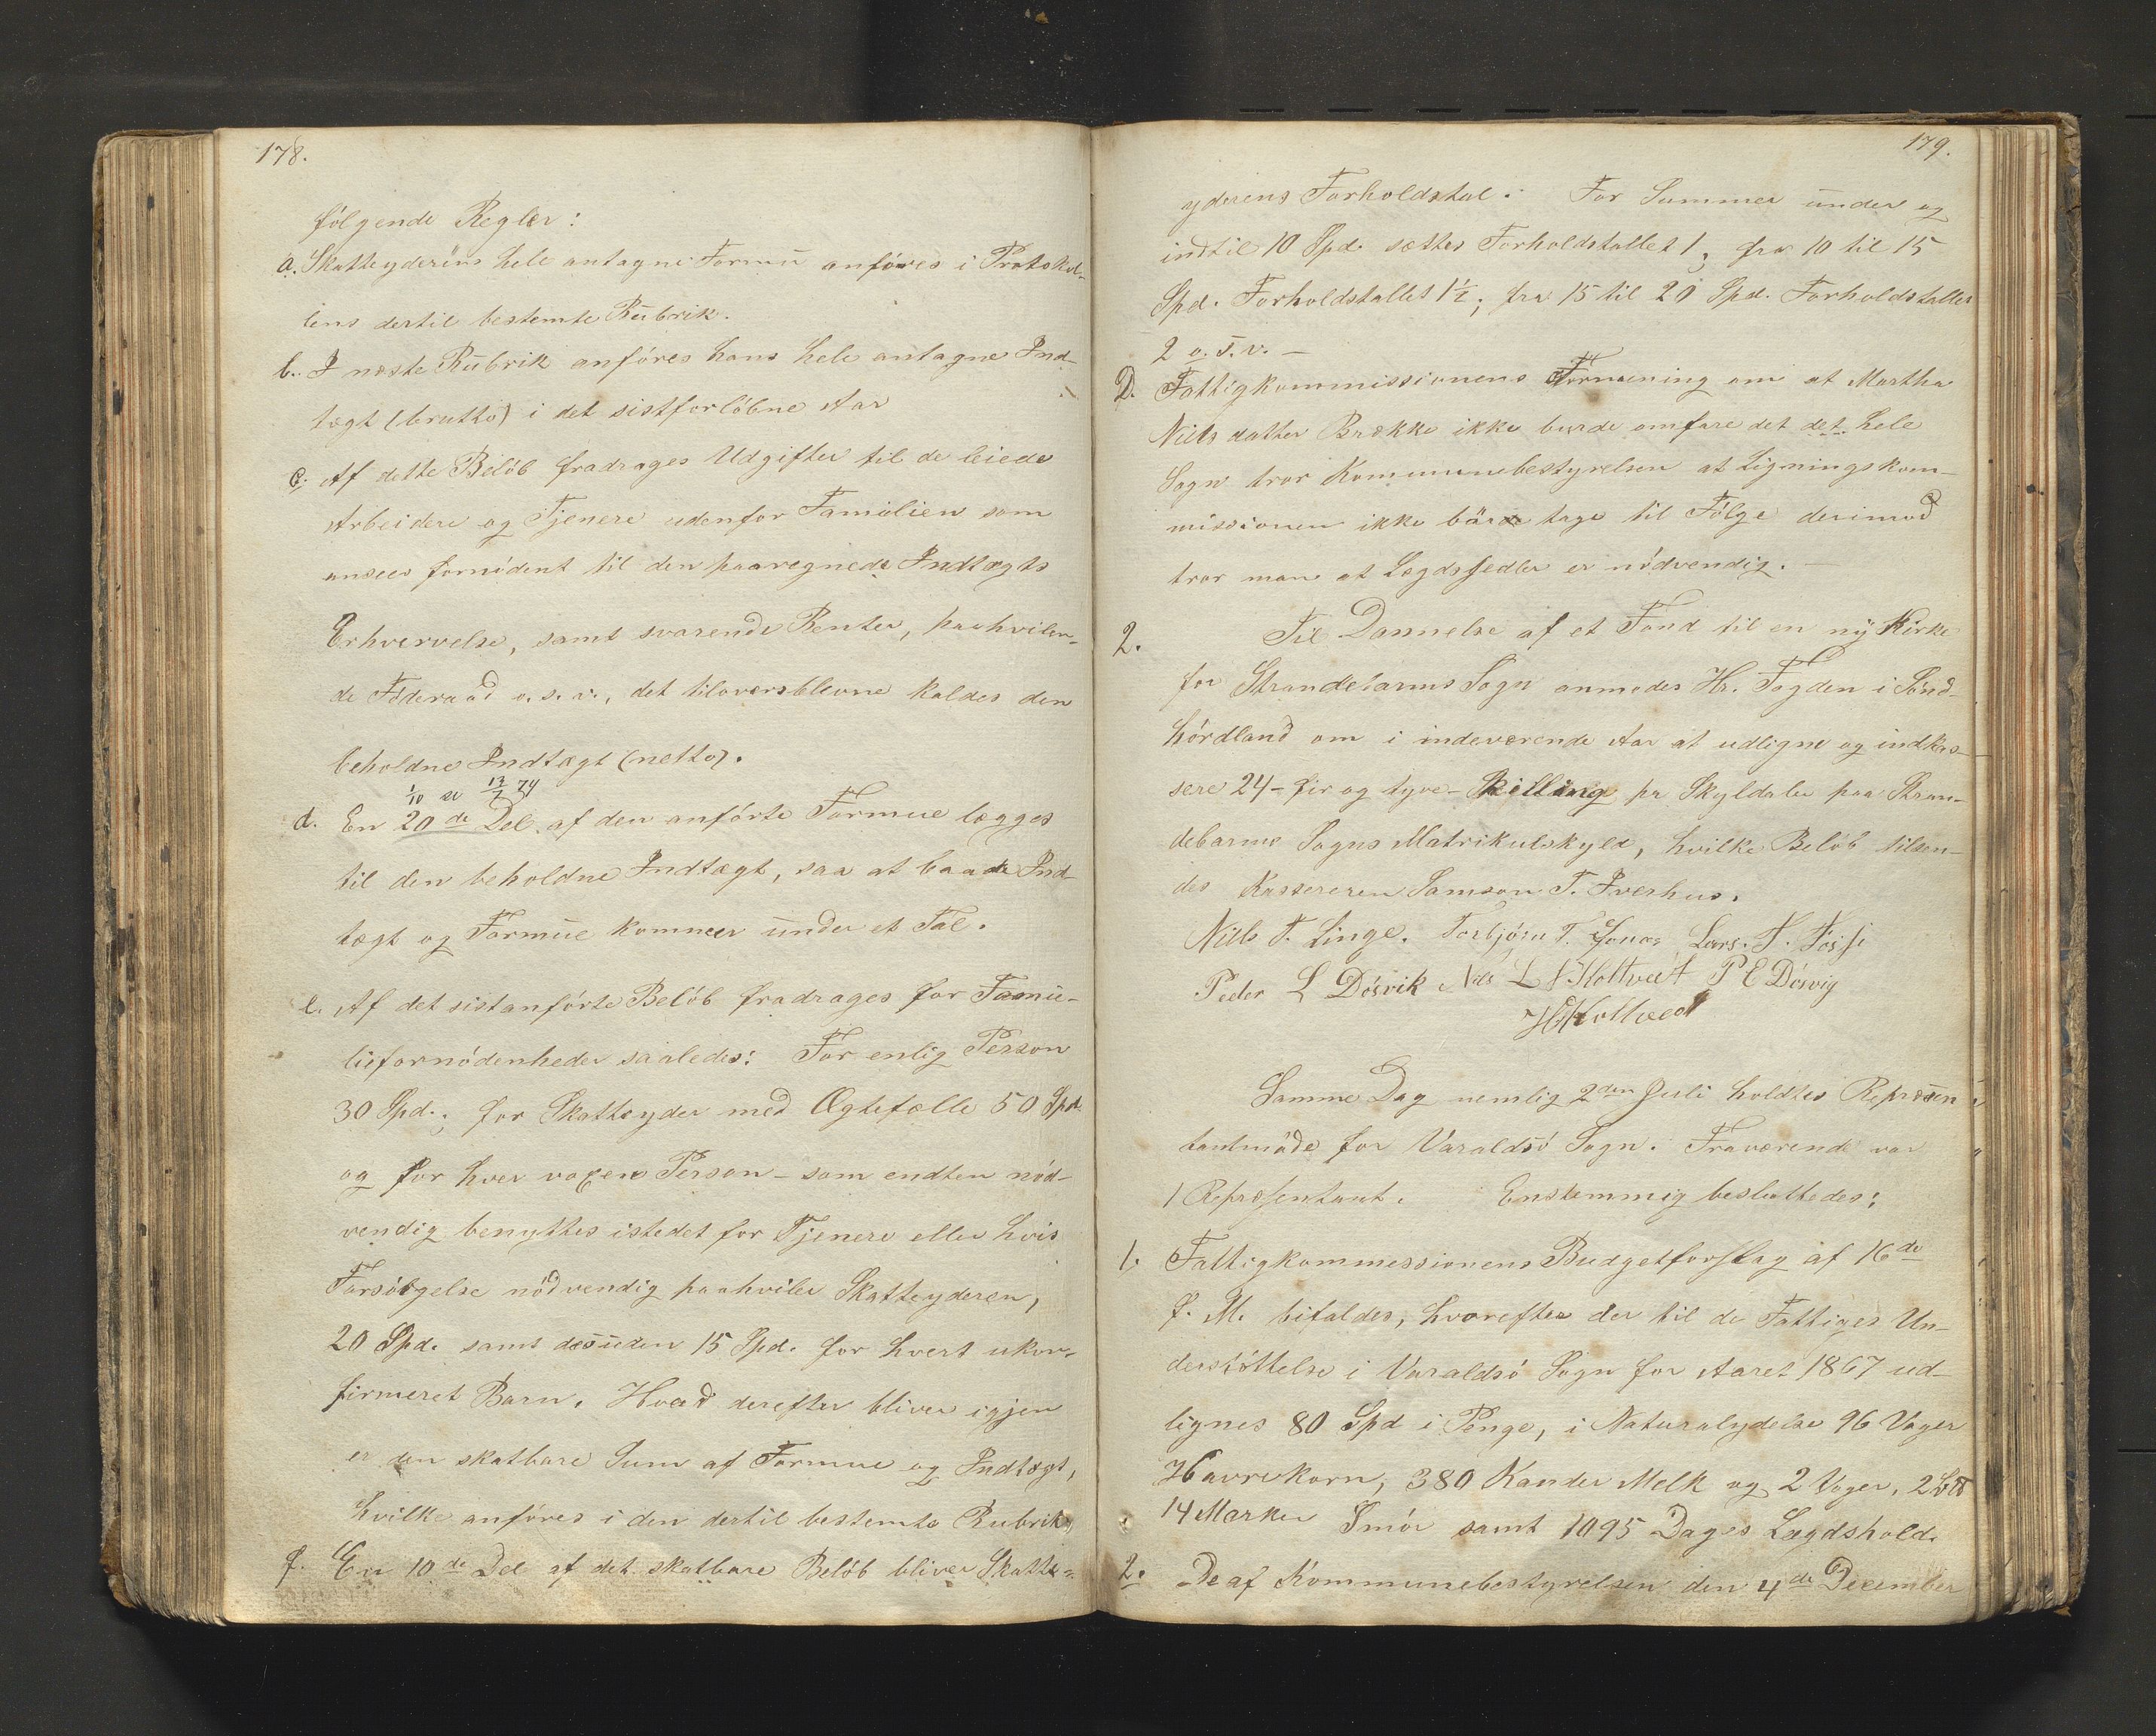 178.
følgende Regler:
a. Skatteyderens hele antagne Formue anføres i Protokol-
lens dertil bestemte Rubrik.
b. I næste Rubrik anføres hans hele antagne Ind-
tægt (brutto) i det sistforløbne Aar
c. Af dette Beløb fradrages Udgifter til de leiede
Arbeidere og Tjenere udenfor Familien som
ansees fornødent til den paaregnede Indtægts
Erhvervelse, samt svarende Renter, paahvilen-
de Føderaad o.s.v., det tiloversblevne kaldes den
beholdne Indtægt (netto).
1/10 se 13/7 74
d. En 20de Del af den anførte Formue lægges
til den beholdne Indtægt, saa at baade Ind-
tægt og Formue kommer under et Tal.
e. Af det sistanførte Beløb fradrages for Fami-
liefornødenheder saaledes: For enlig Person
30 Spd.; for Skatteyder med Ægtefælle 50 Spd.
og for hver voxen Person - som endten nød-
vendig benyttes istedet for Tjenere eller hvis
Forsørgelse nødvendig paahviler Skatteyderen,
20 Spd. samt desuden 15 Spd. for hvert ukon-
firmeret Barn. Hvad derefter bliver igjen
er den skatbare Sum af Formue og Indtægt,
hvilke anføres i den dertil bestemte Rubrik,
f. En 10de Del af det skatbare Beløb bliver Skatte-
179.
yderens Forholdstal. For Summer under og
indtil 10 Spd. sættes Forholdstallet 1, fra 10 til 15
Spd. Forholdstallet 1½; fra 15 til 20 Spd. Forholdstallet
2 o.s.v. -
D. Fattigkommissionens Formening om at Martha
Nielsdatter Brække ikke burde omfare det det hele
Sogn tror Kommunebestyrelsen at Ligningskom-
missionen ikke bør tage til Følge derimod
tror man at Lægdssedler er nødvendig. -
2. Til Dannelse af et Fond til en ny Kirke
for Strandebarms Sogn anmodes Hr. Fogden i Sønd-
hørdland om i indeværende Aar at udligne og indkas-
sere 24 - fir og tyve - Skilling pr Skyldaler paa Stran-
debarms Sogns Matrikulskyld, hvilke Beløb tilsen-
des Kassereren Samson T. Iverhus.
Niels T. Linge. Torbjørn T. Lars.
Peder L Døsvik Nils L Holtveet P E Døsvig
Samme Dag nemlig 2den Juli holdtes Repræsen-
tantmøde for Varaldsø Sogn. Fraværende var
1 Repræsentant. Enstemmig besluttedes:
1. Fattigkommessionens Budgetforslag af 16de
f. M. bifaldes, hvorefter der til de Fattiges Un-
derstøttelse i Varaldsø Sogn for Aaret 1867 ud-
lignes 80 Spd i Penge, i Naturalydelse 96 Voger
Havrekorn, 380 Kander Melk og 2 Voger, 2
14 Marker Smør samt 1095 Dages Lægdshold.
2. De af Kommunebestyrelsen den 4de December